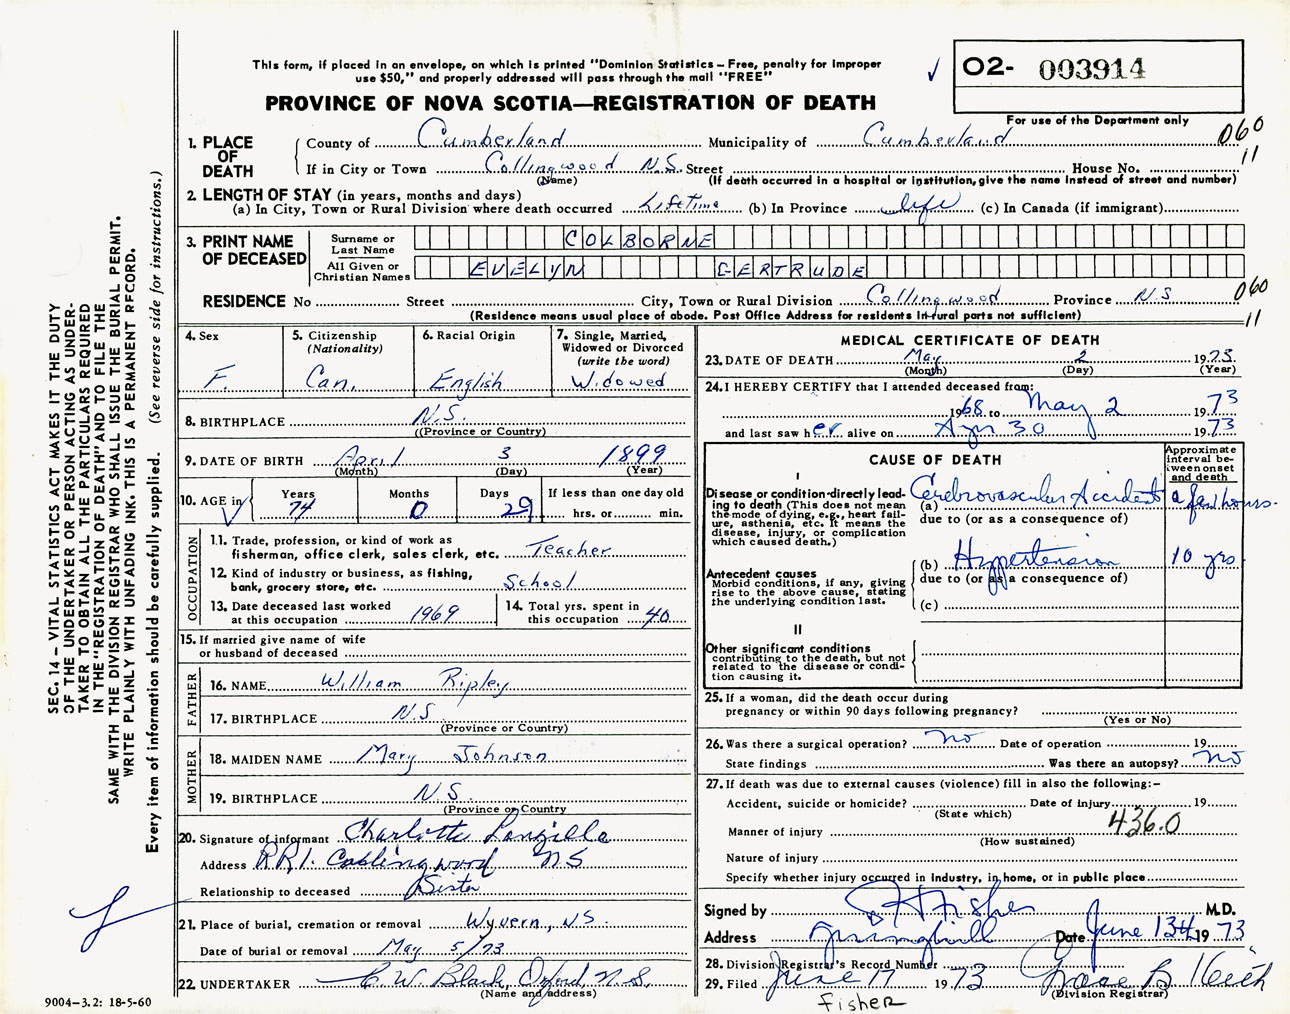 This form, if placed in an envelope, on which is printed "Dominion Statistics – Free, penalty for improper
use $50," and properly addressed will pass through the mail "FREE"
✓ O2- 003914
PROVINCE OF NOVA SCOTIA—REGISTRATION OF DEATH
For use of the Department only
1. PLACE OF DEATH County of Cumberland Municipality of Cumberland 060
If in City or Town Collingwood N.S. Street House No. 11
(Name) (If death occurred in a hospital or institution, give the name instead of street and number)
2. LENGTH OF STAY (in years, months and days)
(a) In City, Town or Rural Division where death occurred Lifetime (b) In Province life (c) In Canada (if immigrant)
3. PRINT NAME OF DECEASED Surname or Last Name COLBORNE
All Given or Christian Names EVELYN GERTRUDE
RESIDENCE No Street City, Town or Rural Division Collingwood Province N.S 060
(Residence means usual place of abode. Post Office Address for residents in rural parts not sufficient) 11
4. Sex F.
5. Citizenship (Nationality) Can.
6. Racial Origin English
7. Single, Married, Widowed or Divorced (write the word) Widowed
8. BIRTHPLACE N.S.
((Province or Country)
9. DATE OF BIRTH April 3 1899
(Month) (Day) (Year)
10. AGE in Years 74 Months 0 Days 29 If less than one day old
hrs. or min.
OCCUPATION
11. Trade, profession, or kind of work as
fisherman, office clerk, sales clerk, etc. Teacher
12. Kind of industry or business, as fishing,
bank, grocery store, etc. School
13. Date deceased last worked
at this occupation 1969
14. Total yrs. spent in
this occupation 40
15. If married give name of wife
or husband of deceased
FATHER
16. NAME William Ripley
17. BIRTHPLACE N.S
(Province or Country)
MOTHER
18. MAIDEN NAME Mary Johnson
19. BIRTHPLACE N S.
(Province or Country
20. Signature of informant Charlotte
Address RR1. Collingwood NS
Relationship to deceased Sister
21. Place of burial, cremation or removal Wyvern, NS.
Date of burial or removal May 5/73
22. UNDERTAKER C. W. Black, Oxford, N.S.
(Name and address)
MEDICAL CERTIFICATE OF DEATH
23. DATE OF DEATH May 2 1973
(Month) (Day) (Year)
24. I HEREBY CERTIFY that I attended deceased from:
1968 to May 2 1973
and last saw her alive on Apr 30 1973
CAUSE OF DEATH
Approximate interval between onset and death
I
Disease or condition directly lead-
ing to death (This does not mean
the mode of dying, e.g., heart fail-
ure, asthenia, etc. It means the
disease, injury, or complication
which caused death.)
(a) Cerebrovascular Accident a few hours.
due to (or as a consequence of)
Antecedent causes
Morbid conditions, if any, giving
rise to the above cause, stating
the underlying condition last.
(b) Hypertension 10 yrs
due to (or as a consequence of)
(c)
II
Other significant conditions
contributing to the death, but not
related to the disease or condi-
tion causing it.
25. If a woman, did the death occur during
pregnancy or within 90 days following pregnancy?
(Yes or No)
26. Was there a surgical operation? no Date of operation 19
State findings Was there an autopsy? no
27. If death was due to external causes (violence) fill in also the following:–
Accident, suicide or homicide? Date of injury 19
(State which) 436.0
Manner of injury
(How sustained)
Nature of injury
Specify whether injury occurred in industry, in home, or in public place
Signed by Fisher M.D.
Address Springhill Date June 13th 1973
28. Division Registrar's Record Number
29. Filed June 17 1973 Grace B Keith
(Division Registrar)
Fisher
SEC. 14 – VITAL STATISTICS ACT MAKES IT THE DUTY
OF THE UNDERTAKER OR PERSON ACTING AS UNDER-
TAKER TO OBTAIN ALL THE PARTICULARS REQUIRED
IN THE "REGISTRATION OF DEATH" AND TO FILE THE
SAME WITH THE DIVISION REGISTRAR WHO SHALL ISSUE THE BURIAL PERMIT.
WRITE PLAINLY WITH UNFADING INK. THIS IS A PERMANENT RECORD.
Every item of information should be carefully supplied. (See reverse side for instructions.)
9004–3.2: 18-5-60